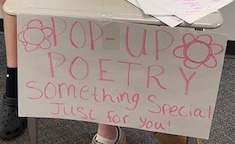 POP-UP
POETRY
Something Special
Just for you!